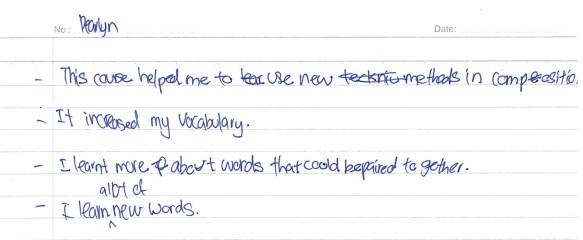 No.: Pearlyn Date:
- This couse helped me to use new methods in compositio
- It increased my Vocabulary.
- I learnt more about words that could be paired to gether.
alot of
- I learn ^ new words.